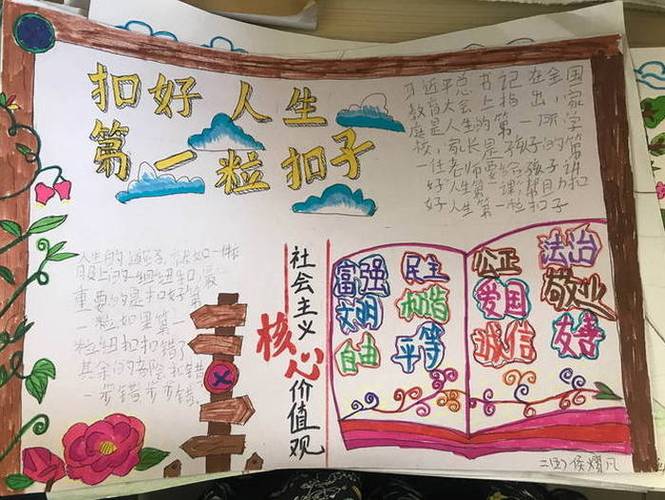 扣好人生
第一粒扣子
习近平总书记在全国
教育大会上指出，家
庭是人生的第一所学
校，家长是孩子的第
一任老师要给孩子讲
好人生第一课,帮助扣
好人生第一粒扣子
人生的道路，就如一件
最
重要的是扣好第
一粒如果第一
粒纽扣扣错了
其余的
一步错,步步错。
社会主义
核心价值观
富强 民主
文明 和谐
自由 平等
公正 法治
爱国 敬业
诚信 友善